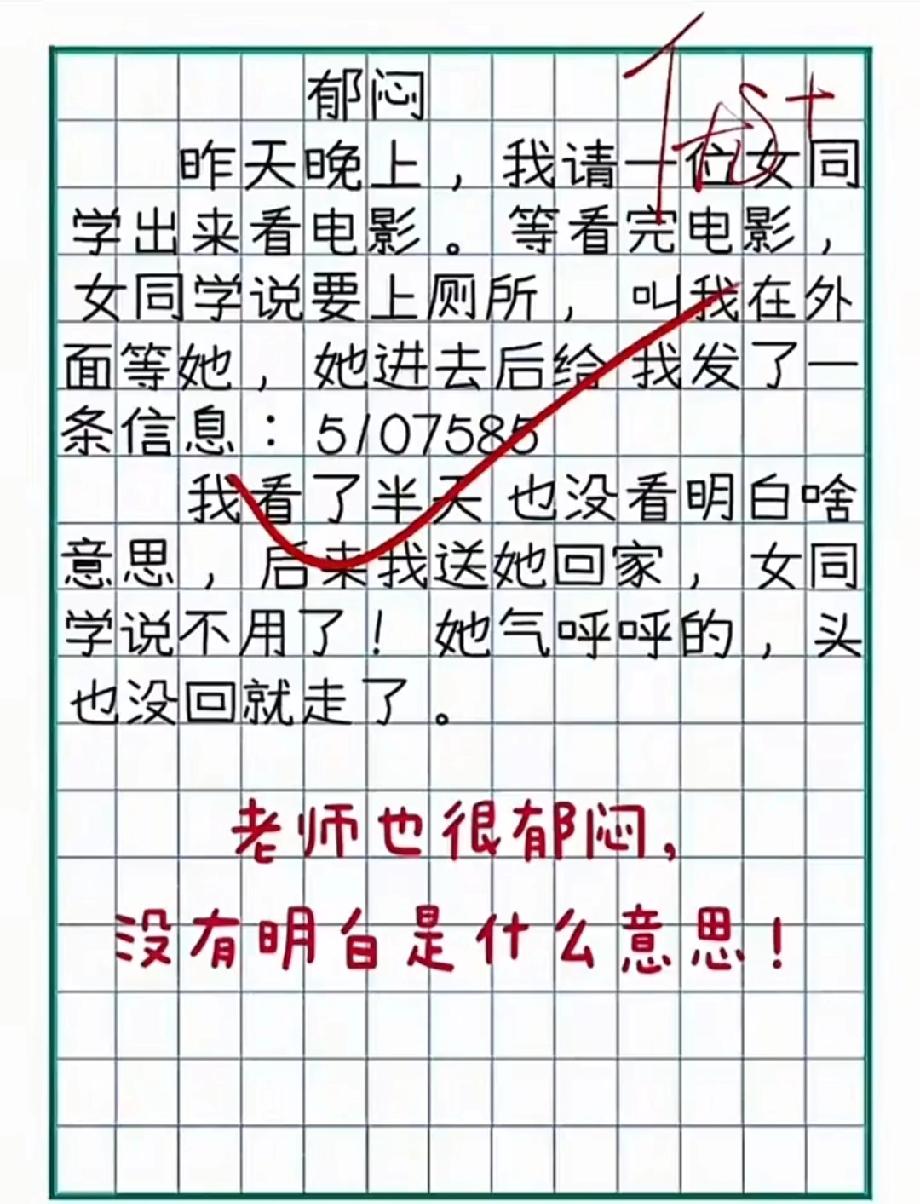 郁闷
昨天晚上，我请一位女同
学出来看电影。等看完电影，
女同学说要上厕所，叫我在外
面等她，她进去后给我发了一
条信息：5107585
我看了半天也没看明白啥
意思，后来我送她回家，女同
学说不用了！她气呼呼的，头
也没回就走了。
老师也很郁闷，
没有明白是什么意思！